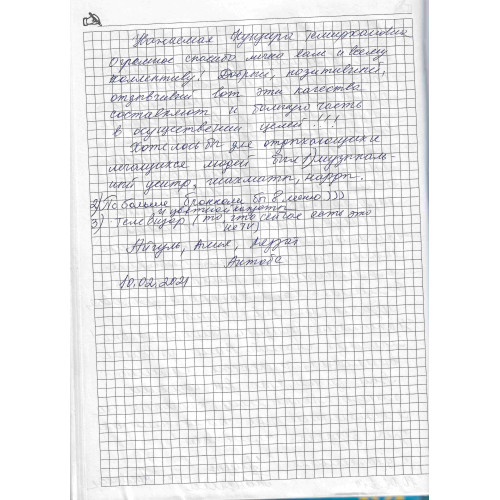 Уважаемая Кундара Темирхановна
Огромное спасибо лично вам и всему
коллективу! Добрый, позитивный,
отзывчивый вот эти качества
составляют и большую часть
в осуществении целей!!!
Хотелось бы для отдыхающих и
лечащихся людей был 1) музыкаль-
ный центр, шахматы, нарды.
2) Побольше брокколи бы в меню)))
и цветной капусты
3) Телевизор (то, что сейчас есть это
не TV)
Айгуль, Алия,
10.02.2021